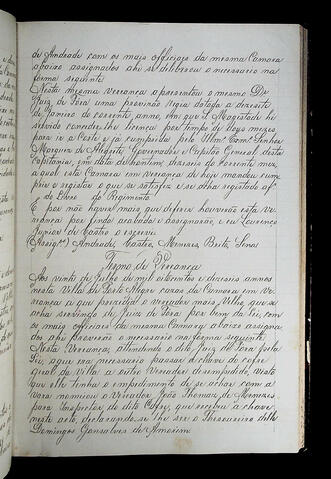 de Andrade com os mais officiaes da mesma Camara
abaixo assignados ahi se deliberou o necessario na
forma seguinte
Nesta mesma vereança apresentou o mesmo Dr
Juiz de Fora uma provisão regia datada a dezesete
de Janeiro do corrente anno, em que S. Magestade he
servido conceder-lhe licença por tempo de dous mezes
para ir a Corte e já cumprida pelo Illmo Exmo Senhor
Marquez de Alegrete Governador e Capitão General desta
Capitania, em data de hontem, dezeseis do corrente mez,
a qual esta Camara em vereança de hoje mandou cum
prir e registar o que se satisfez e se acha registado a f
do Livro do Regimento
E por não haver mais que deferir houverão esta ve
reança por finda acabada e assignarão, e eu Lourenço
Junior de Castro o escrevi
(Assigos) Andrade, Castro, Menezes, Brito, Lima
Termo de Vereança
Aos vinte de Julho de mil oitocentos e dezeseis annos
nesta Villa de Porto Alegre Paços da Camara em Ve
reança a que presidio o vereador mais Velho, que se
acha servindo de Juiz de Fora por bem da Lei, com
os mais officiaes da mesma Camara abaixo assigna
dos ahi proverão o necessario na forma seguinte
Nesta Vereança, attendendo o dito Juiz de Fora pela
Lei, a que era necessario passar a chave do cofre
geral da villa a outro Vereador desempedido, visto
que elle tinha o impedimento de se achar com a
vara nomeiou o Vereador João Thomaz de Menezes
para Inspector do dito Cofre, que recebeu a chave
neste acto, declarando-se lhe ser o Thesoureiro delle
Domingos Gonsalves de Amorim